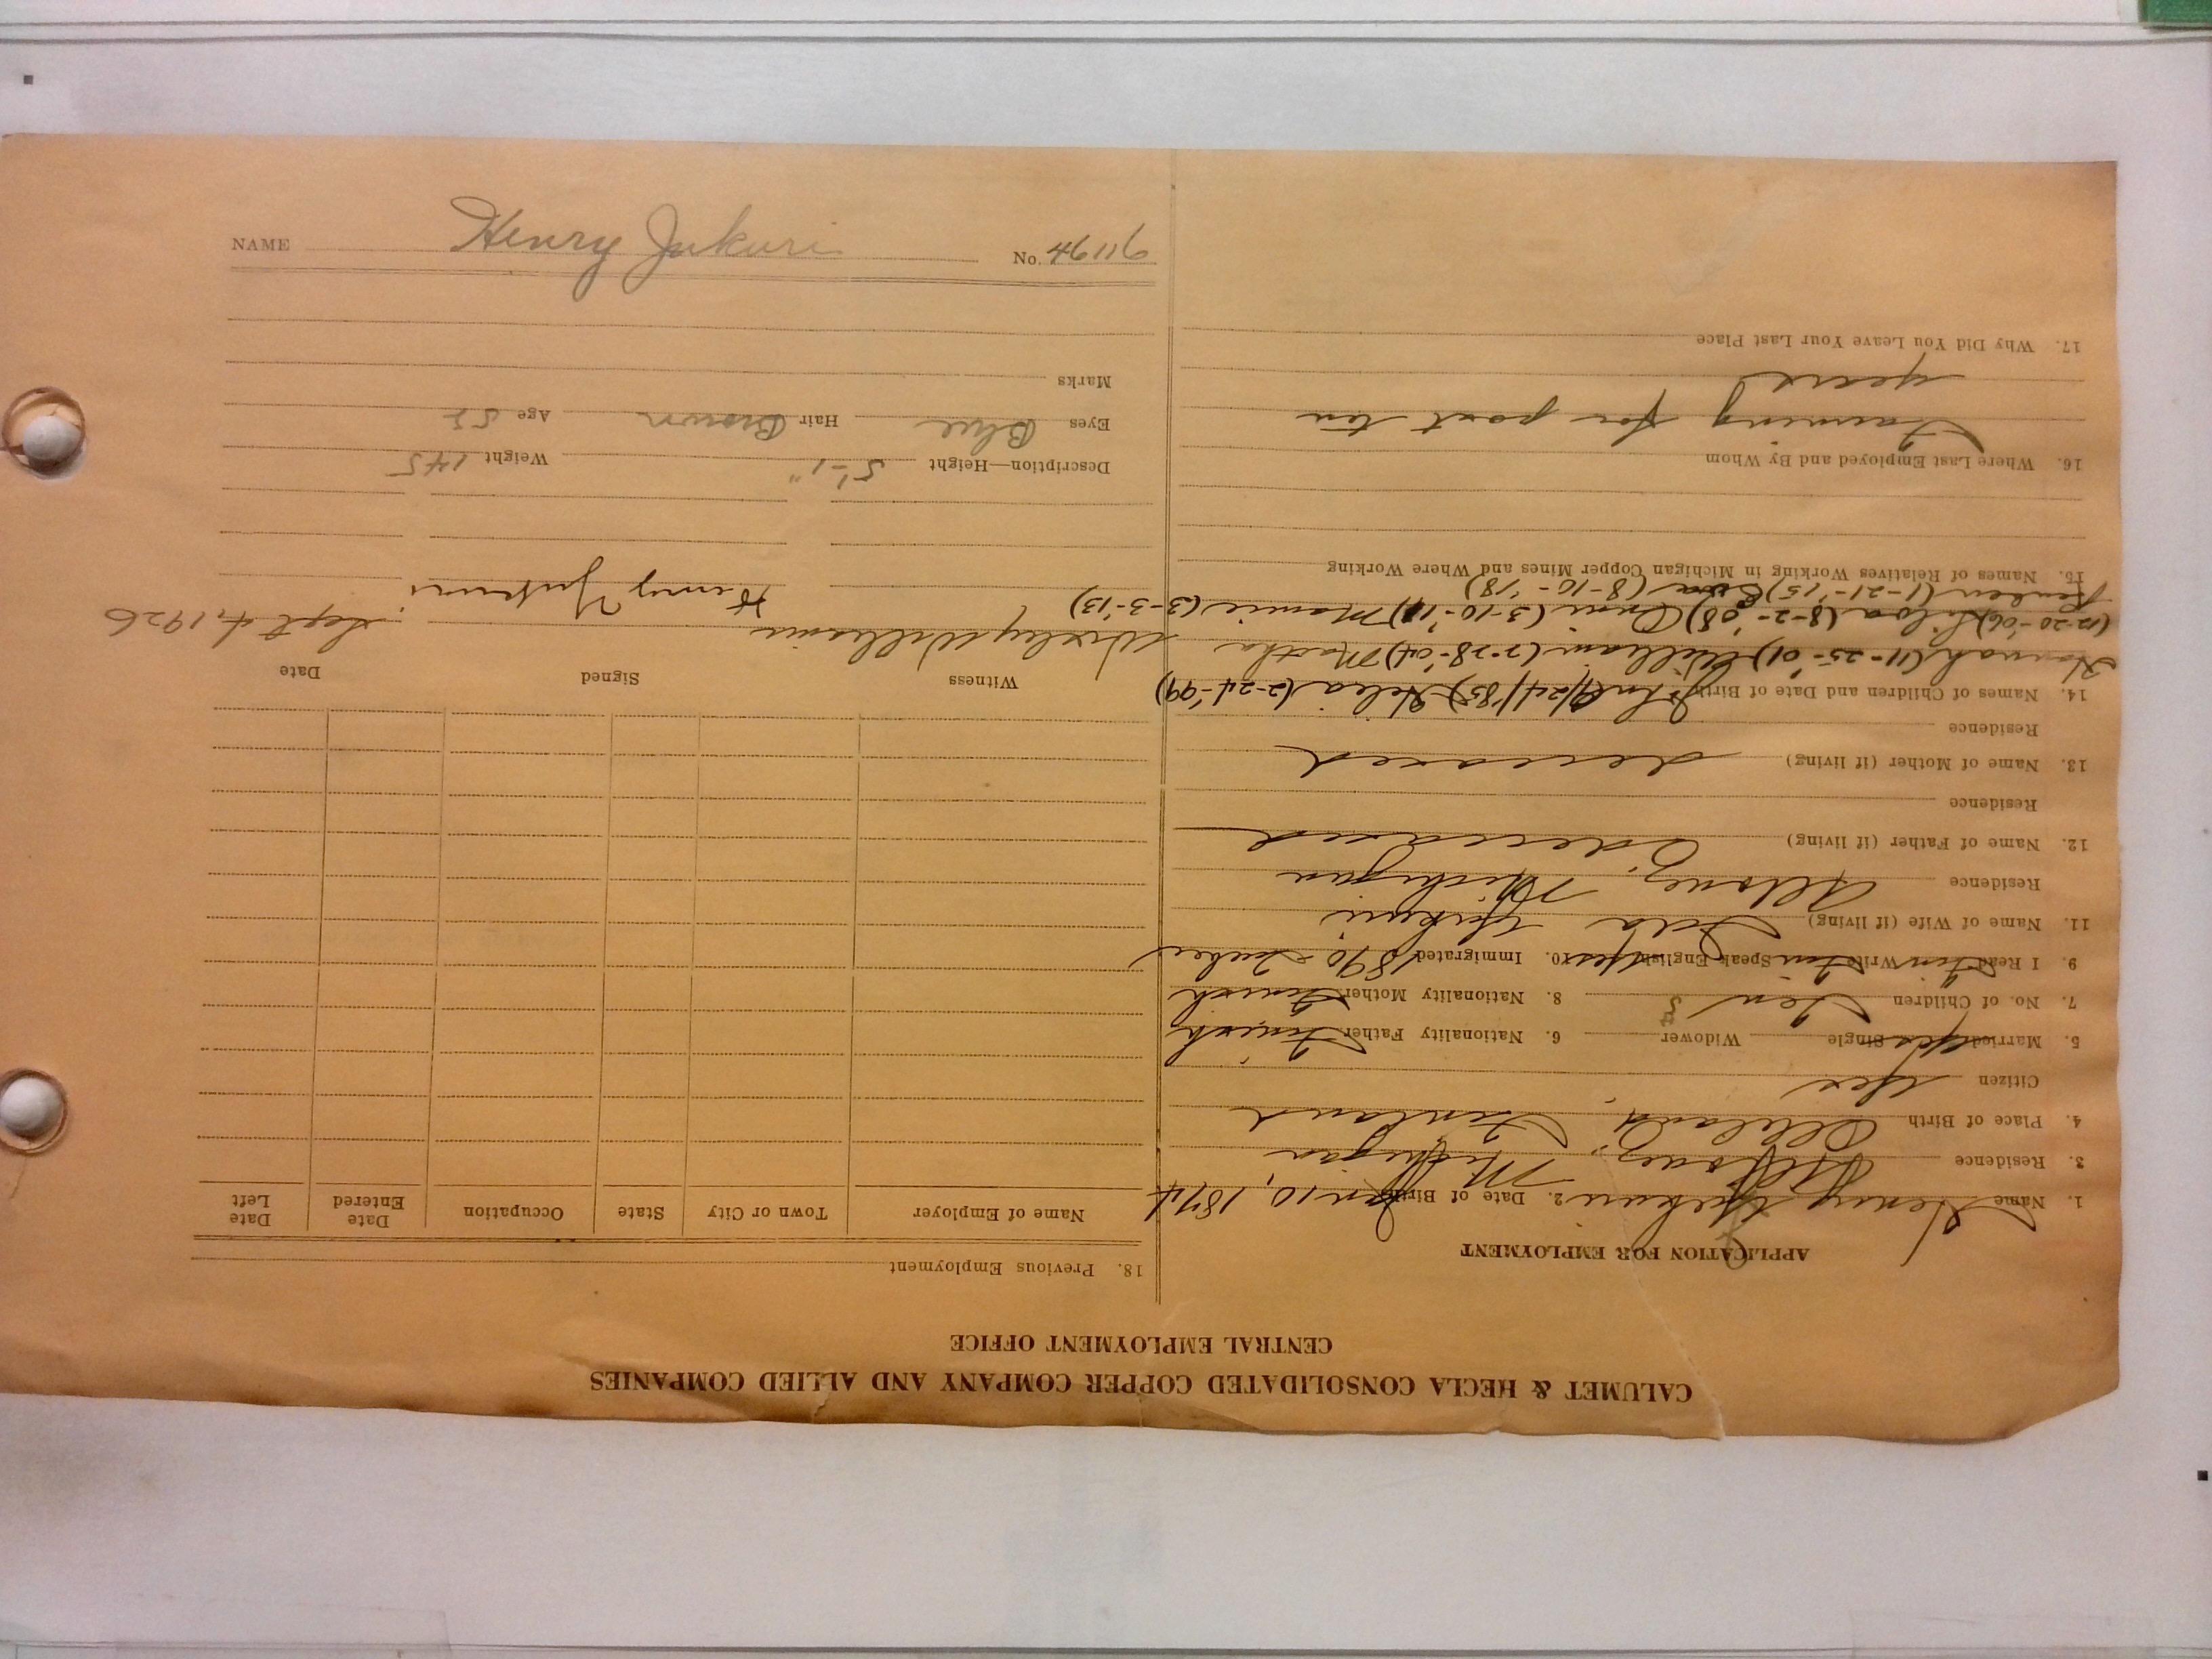 CALUMET & HECLA CONSOLIDATED COPPER COMPANY AND ALLIED COMPANIES
CENTRAL EMPLOYMENT OFFICE
APPLICATION FOR EMPLOYMENT
1. Name Henry Yukuri 2. Date of Birth Jan 10, 1874
3. Residence Allouez, Michigan
4. Place of Birth Finland
Citizen Yes
5. Married Yes Single Widower 6. Nationality Father Finnish
7. No. of Children Ten 8. Nationality Mother Finnish
9. I Read Fin Write Fin Speak English Yes 10. Immigrated 1890
11. Name of Wife (if living) Ida Yukuri
Residence Allouez, Michigan
12. Name of Father (if living) Deceased
Residence
13. Name of Mother (if living) deceased
Residence
14. Names of Children and Date of Birth John (/24/85) Helia (2-24-'99)
Hannah (11-25-'01) William (2-28-'04) Martha
(12-20-'06) (8-2-'08) Annie (3-10-'11) Mamie (3-3-'13)
Reuben (1-21-'15) (8-10-'18)
15. Names of Relatives Working in Michigan Copper Mines and Where Working
16. Where Last Employed and By Whom
Farming for past ten
years
17. Why Did You Leave Your Last Place
18. Previous Employment
Name of Employer Town or City State Occupation Date Entered Date Left
Witness Signed Date
Wesley Williams Henry Yukuri Sept 4, 1926
Description—Height 5'-1" Weight 145
Eyes Blue Hair Brown Age 52
Marks
NAME Henry Jukuri No.